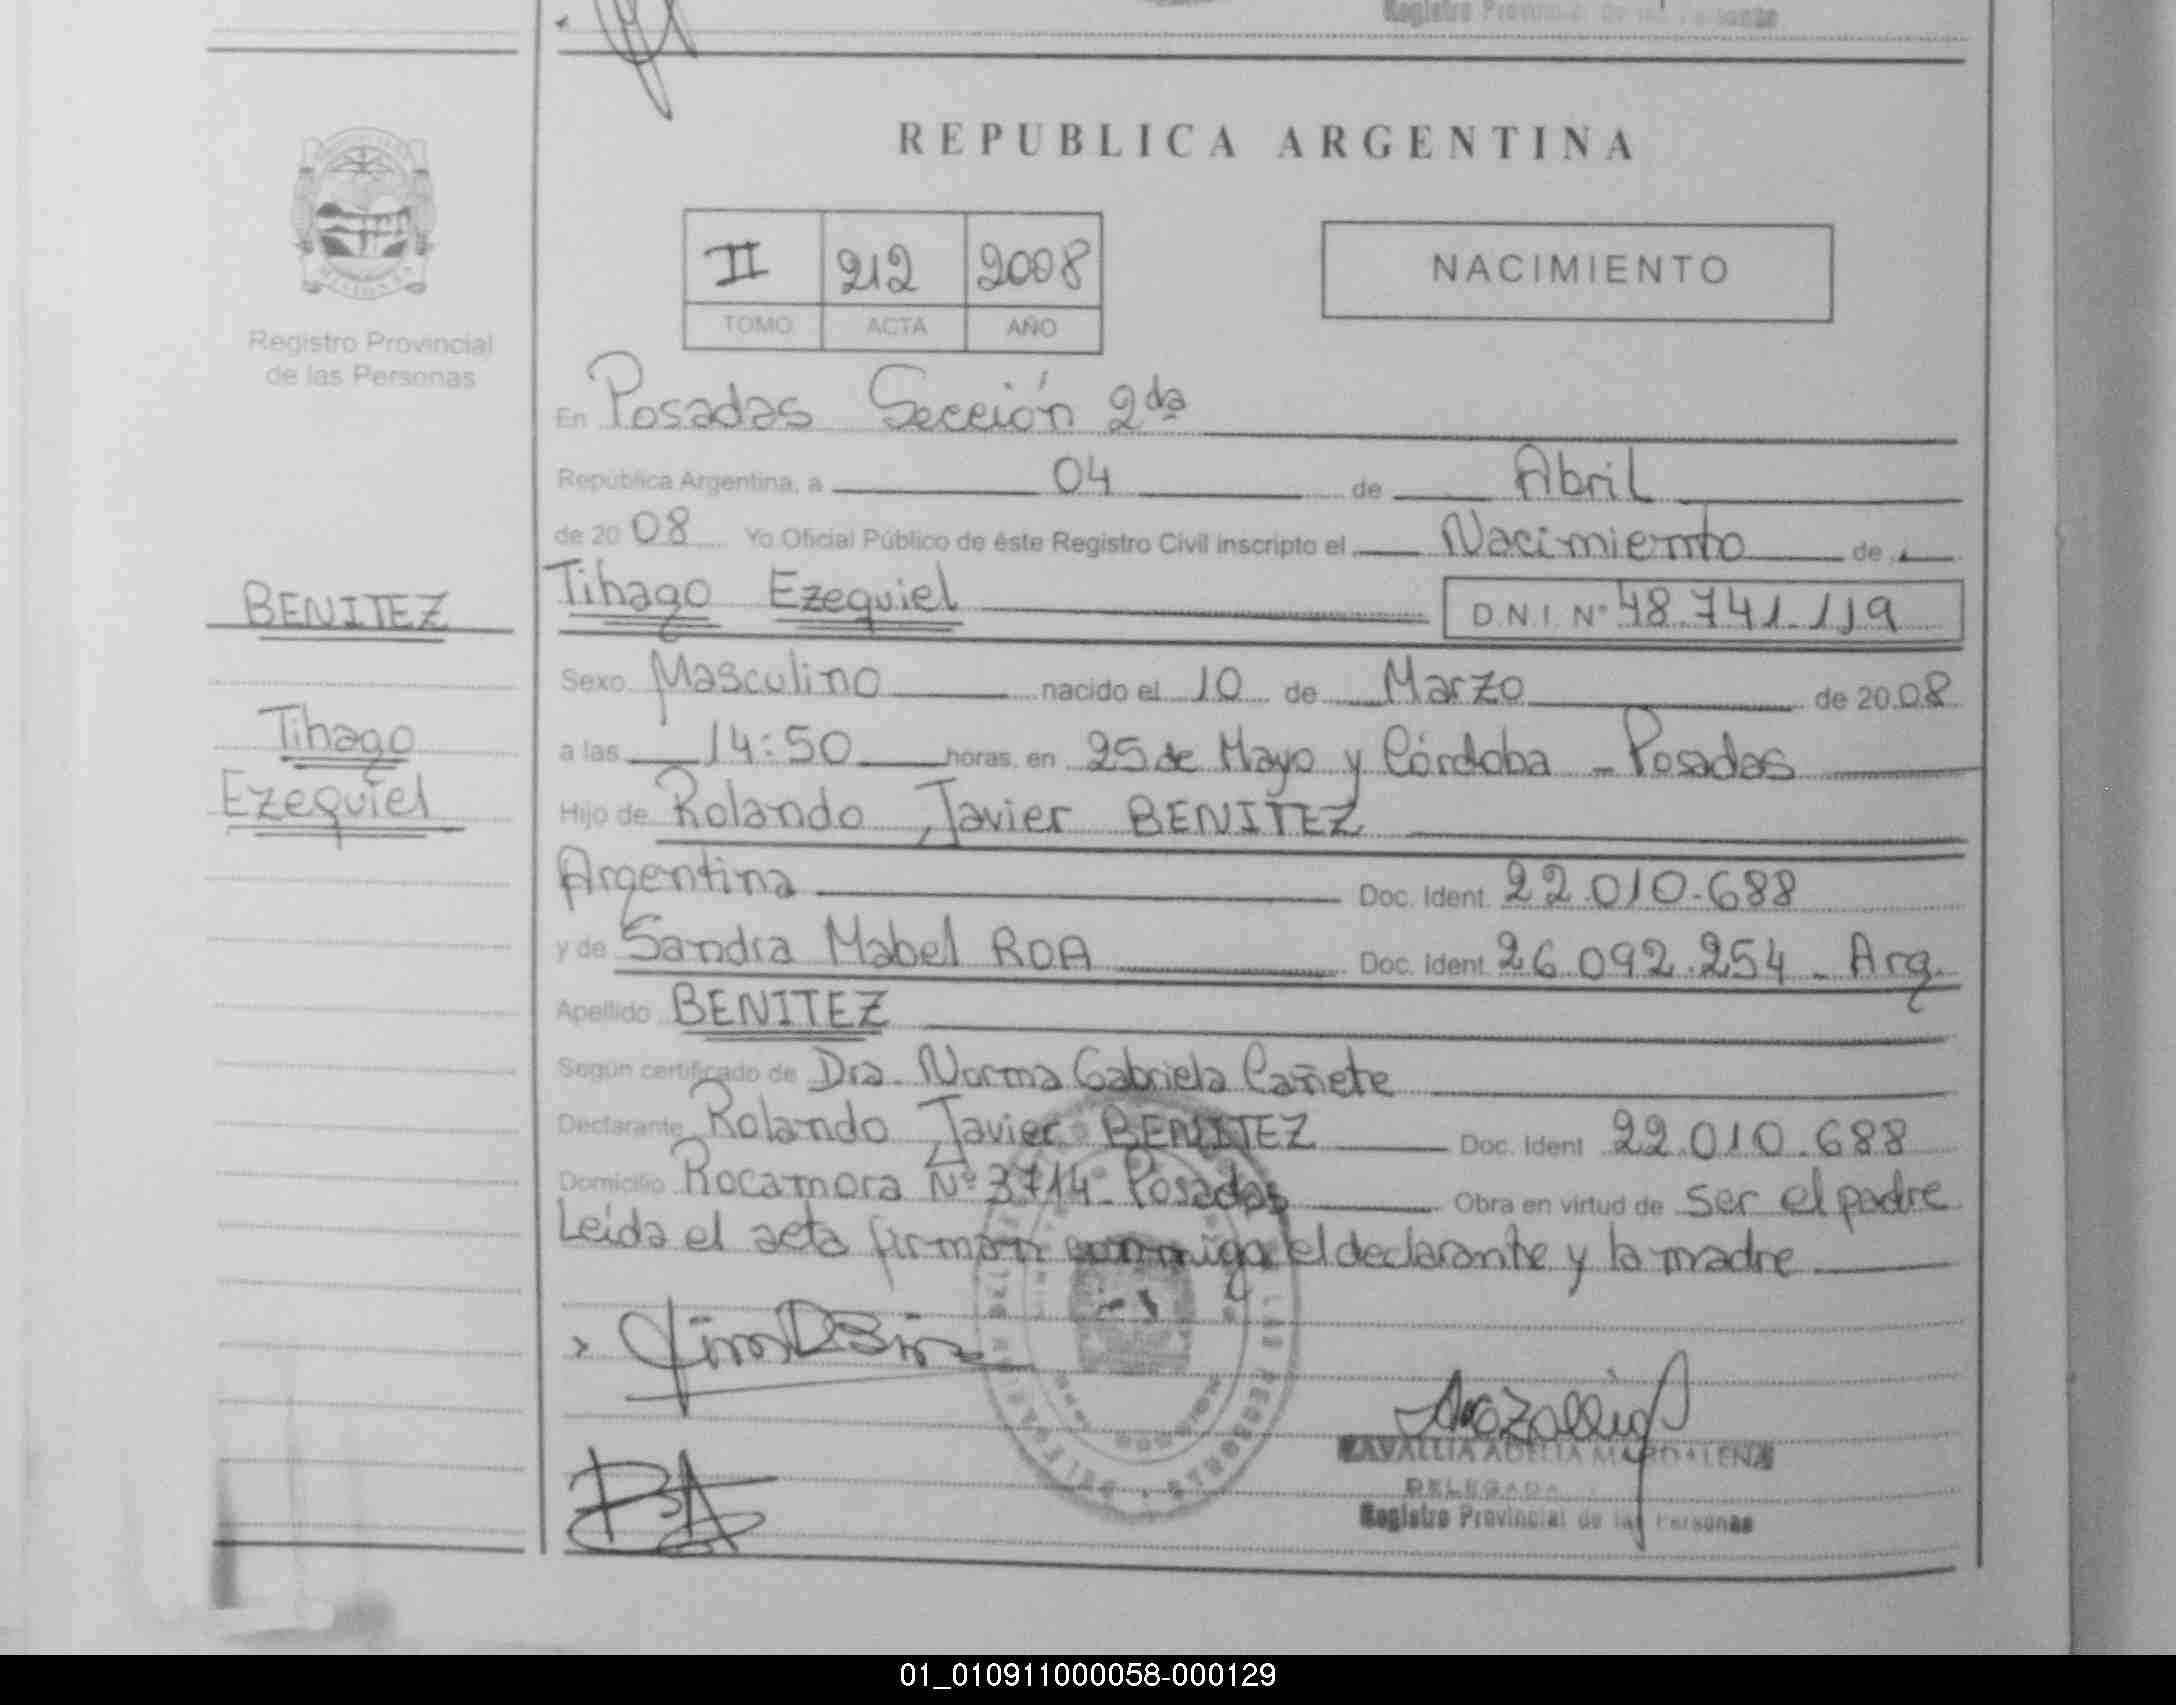 Registro Provincial de las Personas
REPUBLICA ARGENTINA
II 212 2008
TOMO ACTA AÑO
NACIMIENTO
Registro Provincial
de las Personas
En Posadas Sección 2da
Republica Argentina, a 04 de Abril
de 20 08 Yo Oficial Público de éste Registro Civil inscripto el Nacimiento de
BENITEZ
Tihago Ezequiel D.N.I. Nº 48.741.119
Sexo Masculino nacido el 10 de Marzo de 20 08
Tihago
a las 14:50 horas, en 25 de Mayo y Córdoba - Posadas
Ezequiel
Hijo de Rolando Javier BENITEZ
Argentina Doc. Ident. 22.010.688
y de Sandra Mabel ROA Doc. Ident. 26.092.254 - Arg.
Apellido BENITEZ
Según certificado de Dra. Norma Gabriela Cañete
Declarante Rolando Javier BENITEZ Doc. Ident 22.010.688
Domicilio Rocamora Nº 3714- Posadas Obra en virtud de ser el padre
Leida el acta firman conmigo el declarante y la madre
ADELIA MAGDALENA
DELEGADA
Registro Provincial de las Personas
01_010911000058-000129